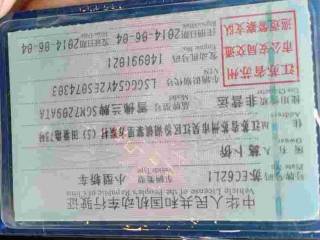 中华人民共和国机动车行驶证
Vehicle License of the People's Republic of China
号牌号码 苏EC62L1 车辆类型 小型轿车
Plate No. Vehicle Type
所有人
Owner
住址
Address
使用性质 非营运 品牌型号 雪佛兰牌SGM7209ATA
Use Character Model
江苏省苏州市公安局交通巡逻警察支队
车辆识别代号
VIN
LSGGG54Y2ES074303
发动机号码 140911021
Engine No.
注册日期 2014-06-04 发证日期 2014-06-04
Register Date Issue Date